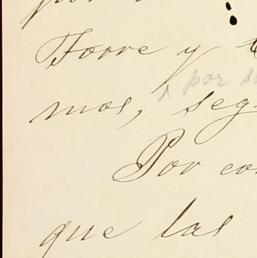 Torre y
por s
mos, seg
Por co
que las